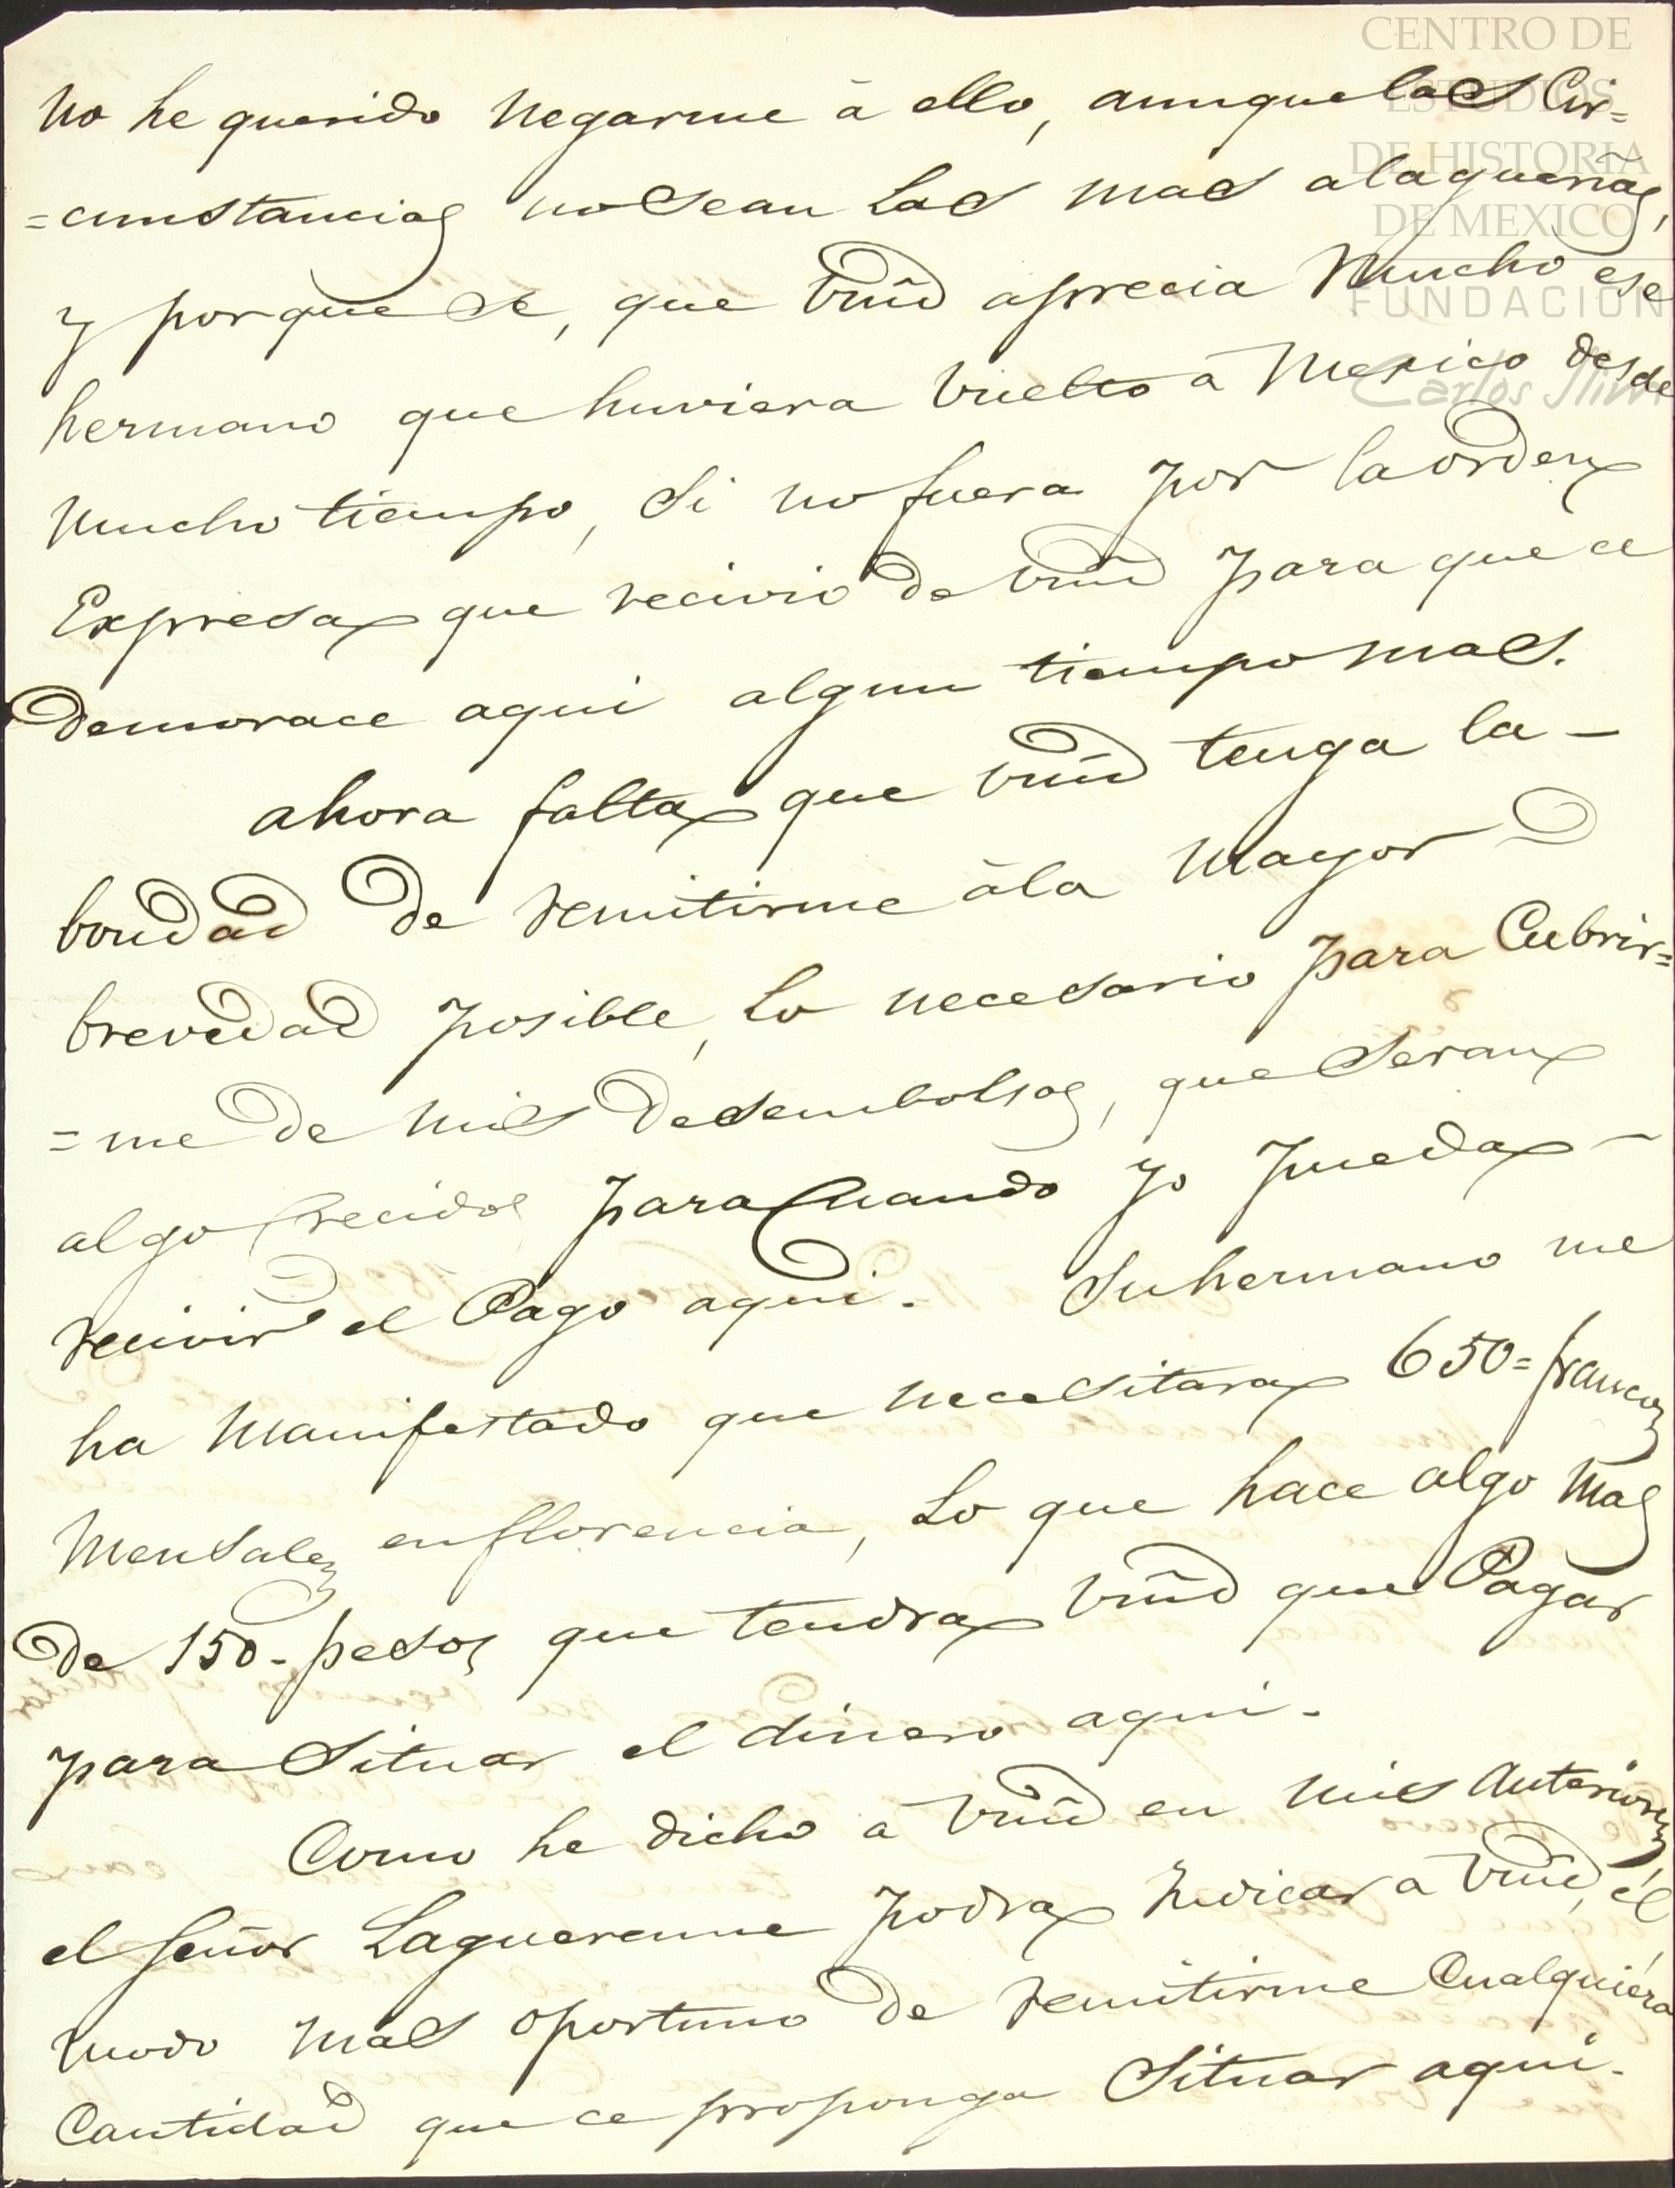 CENTRO DE
ESTUDIOS
DE HISTORIA
DE MEXICO
FUNDACION
Carlos Slim
no he querido negarme á ello, aunque las Cir=
=cunstancias no sean las mas alagueñas,
y porque se, que Vmd aprecia mucho ese
hermano que huviera vuelto a Mexico desde
mucho tiempo, si no fuera por la orden
Expresa que recivio de Vmd para que ce
demorace aqui algun tiempo mas.
ahora falta que Vmd tenga la –
bondad de remitirme á la mayor
brevedad posible, lo necesario para Cubrir=
=me de mis desembolsos, que seran
algo crecidos para Cuando yo pueda –
recivir el Pago aqui. Su hermano me
ha manifestado que necesitara 650= francos
mensales en florencia, lo que hace algo mas
de 150- pesos que tendra Vmd que Pagar
para Situar el dinero aqui.
Como he dicho a Vmd en mis Anteriores,
el Señor Laguerenne podra Indicar a Vmd, el
modo mas oportuno de remitirme Cualquiera
Cantidad que ce proponga Situar aqui.